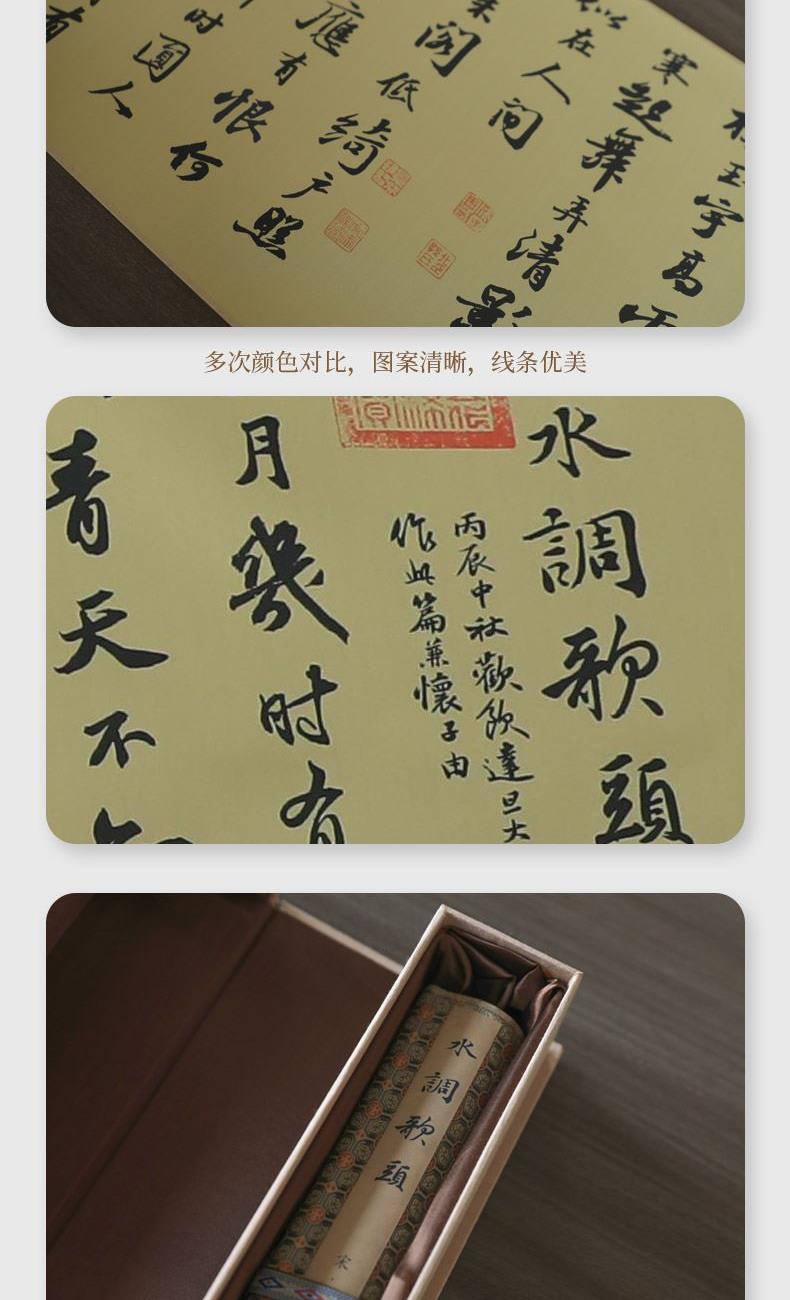 玉宇高
寒起舞弄清影
似在人间
朱阁低綺户照
應有恨何
时圓人
有
多次颜色对比，图案清晰，线条优美
水調歌頭
丙辰中秋歡飲達旦大
作此篇兼懷子由
月幾时有
青天不
水調歌頭
宋